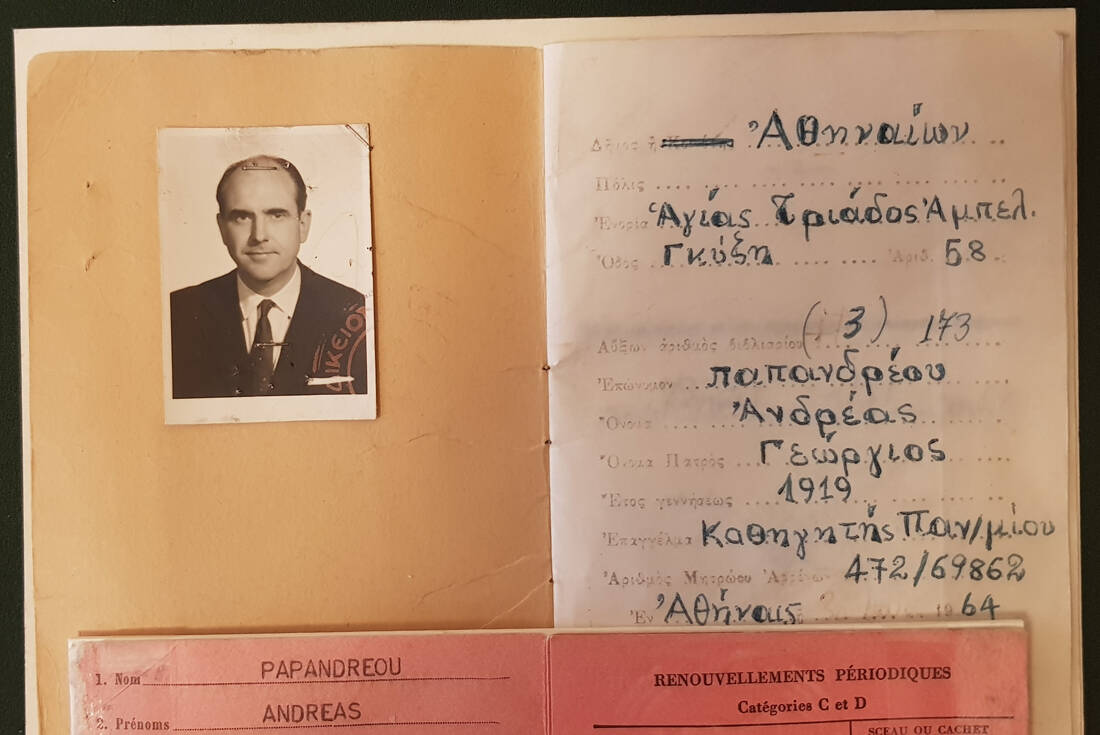 ΟΙΚΕΙΟ
Δῆμος ἢ Κοινότης Ἀθηναίων
Πόλις
Ἐνορία Ἁγίας Τριάδος Ἀμπελ.
Ὁδὸς Γκύζη Ἀριθ. 58
Αὔξων ἀριθμὸς βιβλιαρίου (3) 173
Ἐπώνυμον Παπανδρέου
Ὄνομα Ἀνδρέας
Ὄνομα Πατρὸς Γεώργιος
Ἔτος γεννήσεως 1919
Ἐπάγγελμα Καθηγητής Παν/μίου
Ἀριθμὸς Μητρώου Ἀρρένων 472/69862
Ἐν Ἀθήναις 1964
1. Nom PAPANDREOU
2. Prénoms ANDREAS
RENOUVELLEMENTS PÉRIODIQUES
Catégories C et D
SCEAU OU CACHET